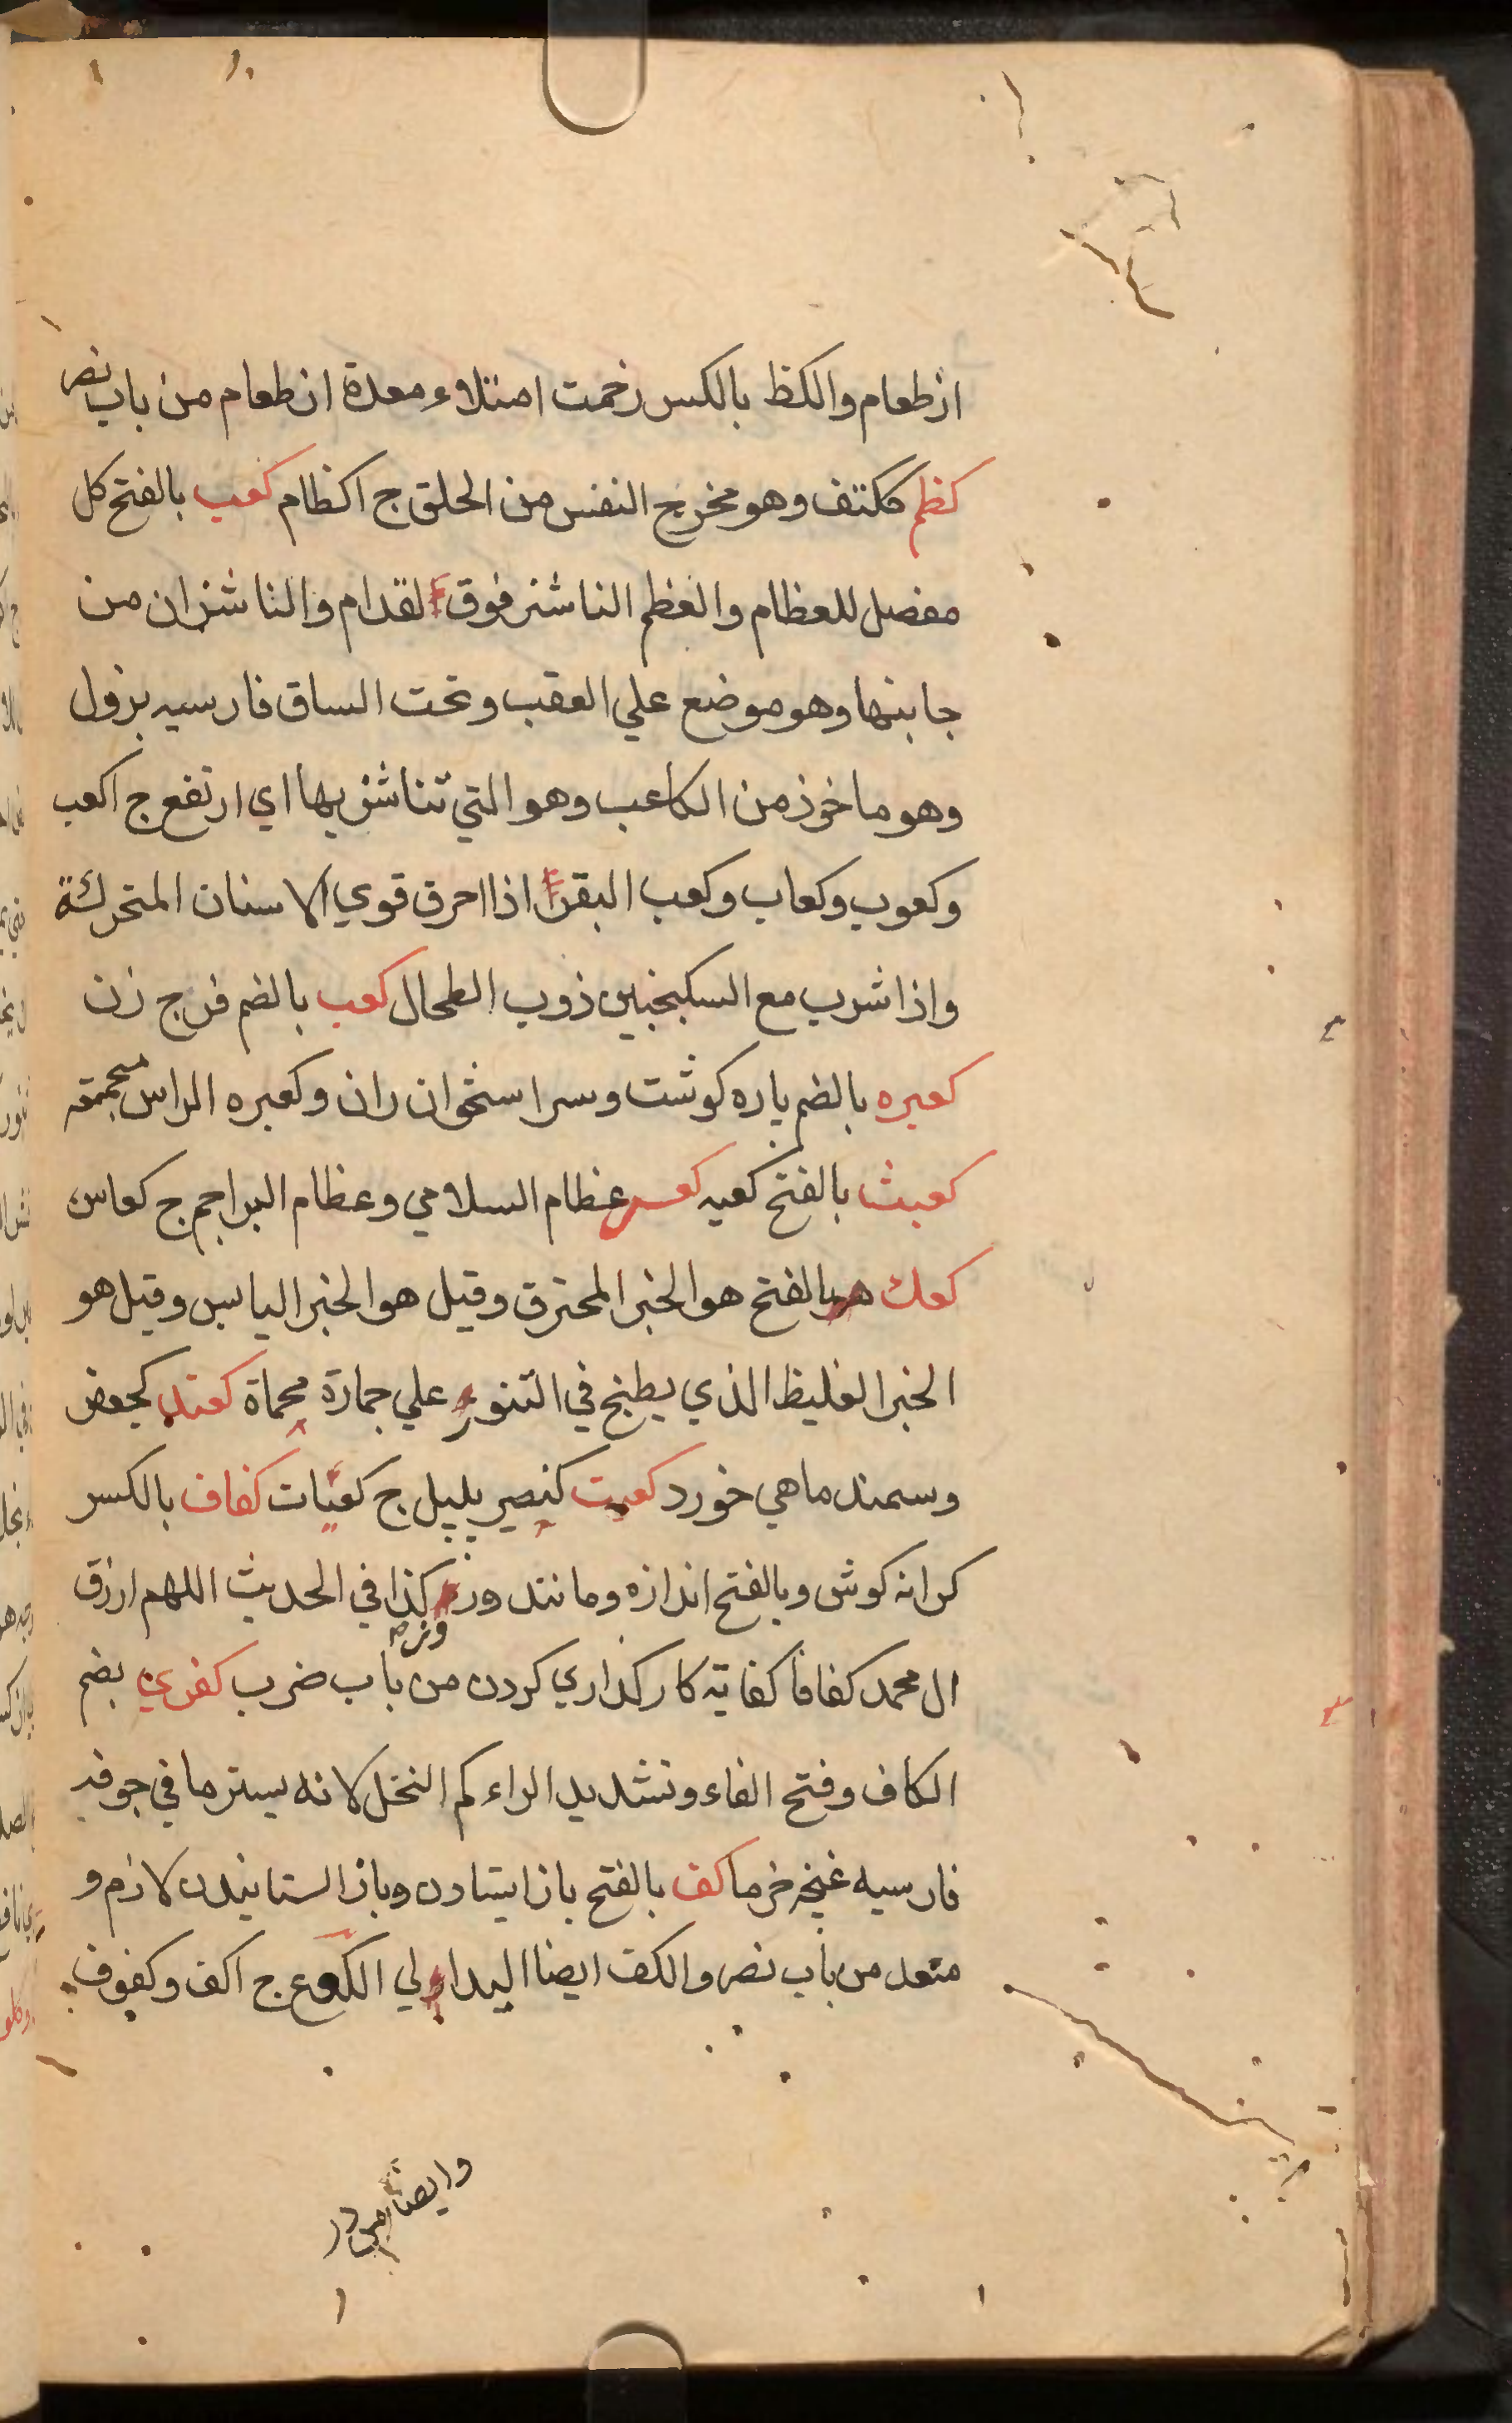 از طعام والكظ بالكسر زخمت امتلاء معدة از طعام من باب نصر
كظم ككتف وهو مخرج النفس من الحلق ج اكظام كعب بالفتح كل
مفصل للعظام والعظم الناشز فوق القدام والناشزان من
جانبها وهو موضع علي العقب وتحت الساق فارسيه بزول
وهو ماخوذ من الكاعب وهو التي تناشز بها اي ارتفع ج اكعب
وكعوب وكعاب وكعب البقر اذا احرق قوي الاسنان المتحركة
واذا شرب مع السكنجبين ذوب الطحال كعب بالضم فرج زن
كعبره بالضم پاره كوشت وسر استخوان ران وكعبره الراس جمجمته
كعبث بالفتح كعيه عظام السلامي وعظام البراجم ج كعاس
كعك بالفتح هو الخبز المحترق وقيل هو الخبز اليابس وقيل هو
الخبز الغليظ الذي يطبخ في التنور علي جمارة محماة كعند كجعفر
وسمند ماهي خورد كعيت كنصير بلبل ج كعيات كفاف بالكسر
كرانه كوش وبالفتح اندازه ومانند وروزمره كذا في الحديث اللهم ارزق
ال محمد كفافا كفاية كار كذاري كردن من باب ضرب كفري بضم
الكاف وفتح الفاء وتشديد الراء كم النخل لانه يستر ما في جوفه
فارسيه غنچه خرما كف بالفتح باز ايستادن وباز استانيدن لازم و
متعد من باب نصر والكف ايضا اليد او لي الكوع ج اكف وكفوف
وايضا